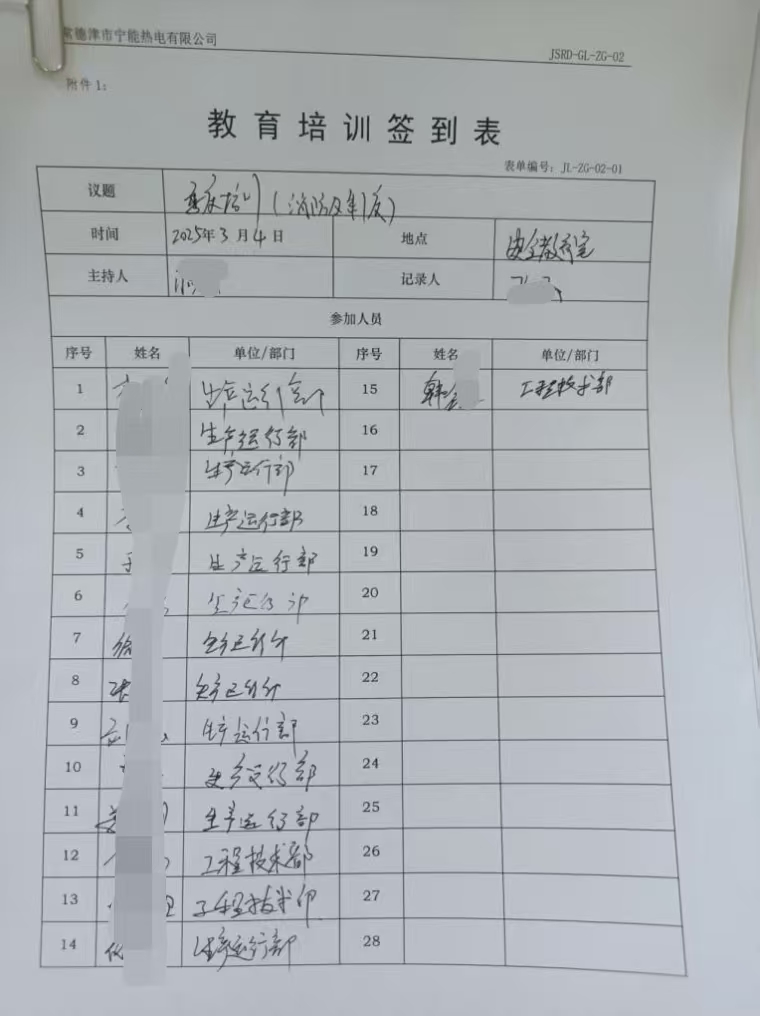 常德津市宁能热电有限公司
JSRD-GL-ZG-02
附件1:
教育培训签到表
表单编号: JL-ZG-02-01
议题 培训(消防及制度)
时间 2025年3月4日 地点 安全教育室
主持人 记录人
参加人员
序号 姓名 单位/部门 序号 姓名 单位/部门
1 生产运行部 15 韩 工程技术部
2 生产运行部 16
3 生产运行部 17
4 生产运行部 18
5 生产运行部 19
6 生产运行部 20
7 生产运行部 21
8 生产运行部 22
9 生产运行部 23
10 生产运行部 24
11 生产运行部 25
12 工程技术部 26
13 工程技术部 27
14 生产运行部 28